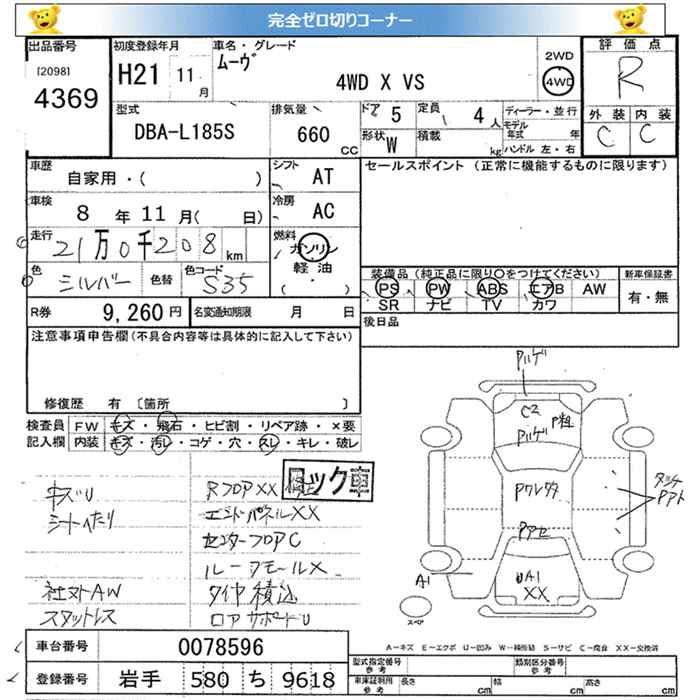 完全ゼロ切りコーナー
出品番号 初度登録年月 車名・グレード 2WD 評価点
[2098] H21 11月 ムーヴ 4WD R
4369 4WD X VS
型式 排気量 ドア 5 定員 4人 ディーラー・並行 外装 内装
DBA-L185S 660 CC 形状 W 積載 kg モデル年式 年 C C
ハンドル 左・右
車歴 自家用・( ) シフト AT セールスポイント (正常に機能するものに限ります)
車検 8年11月( 日) 冷房 AC
走行 21万0千208km 燃料 ガソリン
色 シルバー 色替 色コード S35 軽油 ( ・ )
装備品(純正品に限り〇をつけてください) 新車保証書
PS PW ABS エアB AW 有・無
SR ナビ TV カワ
R券 9,260円 名変通知期限 月 日 後日品
注意事項申告欄(不具合内容等は具体的に記入して下さい)
修復歴 有 〔箇所 〕
検査員 FW キズ・飛石・ヒビ割・リペア跡・×要
記入欄 内装 キズ・汚レ・コゲ・穴・スレ・キレ・破レ
キズU RフロアXX ロック車
シートヘたり エンドパネルXX
センターフロアC
ルーフモールX
社外AW タイヤ積込
スタットレス ロアサポートU
C2
P粗
A1
UA1
XX
スペア
A-キズ E-エクボ U-凹み W-補修跡 S-サビ C-腐食 XX-交換済
車台番号 0078596
登録番号 岩手 580 ち 9618
型式指定番号 参考 類別区分番号 参考
車庫証明用 参考 長さ cm 幅 cm 高さ cm